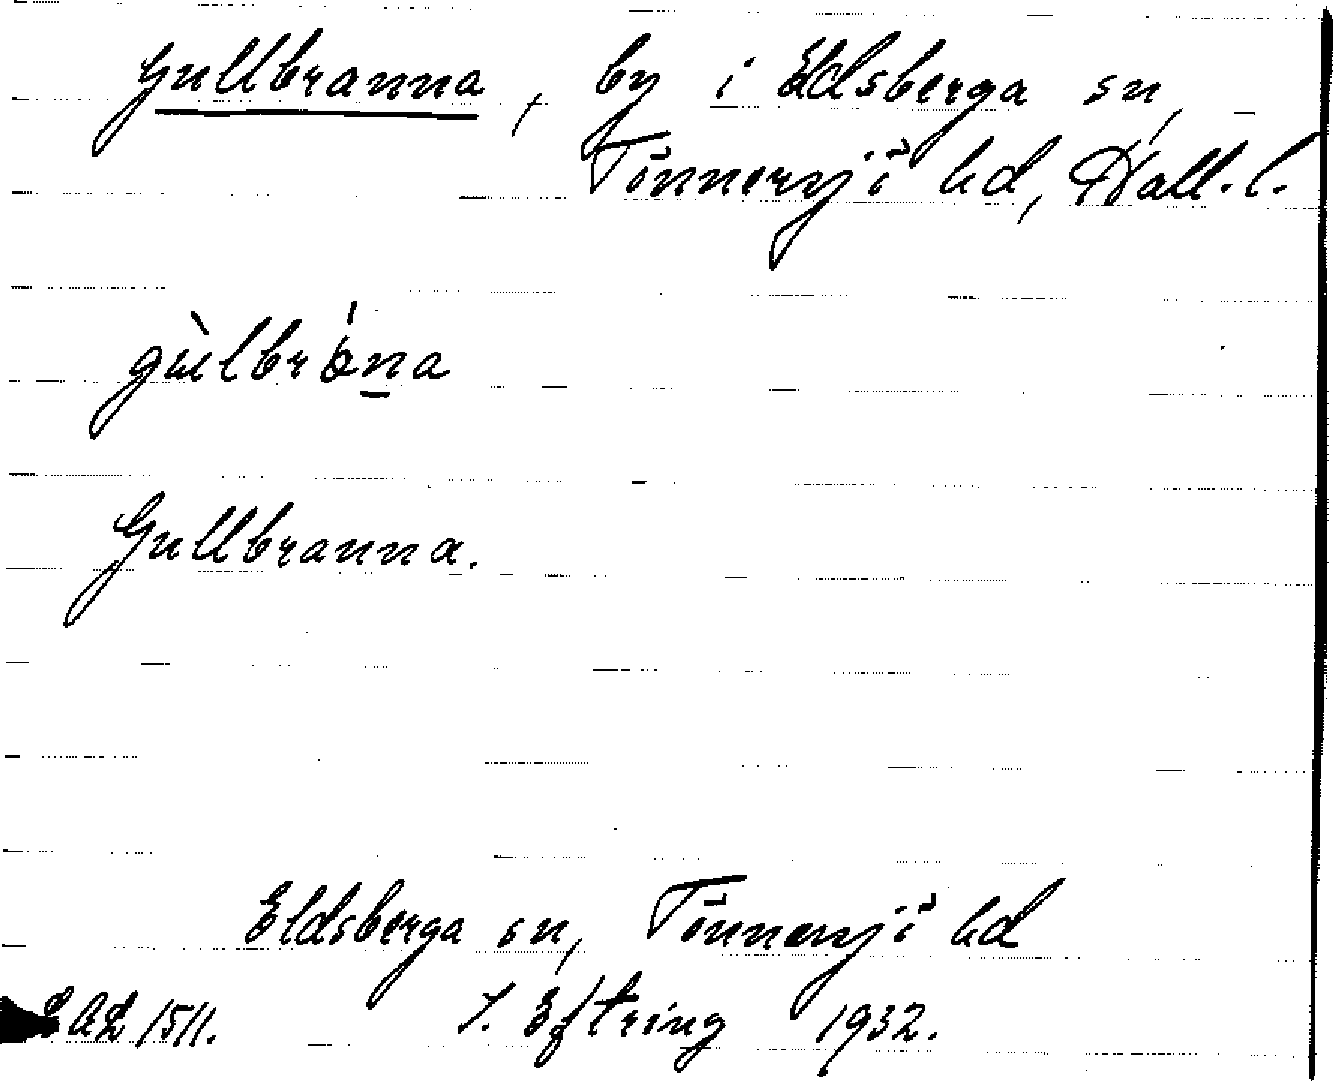 Gullbranna, by i Eldsberga sn,
Tönnersjö hd, Hall. l.
gùlbrána
Gullbranna.
Eldsberga sn, Tönnersjö hd
LAL 1511. J. Eftring 1932.